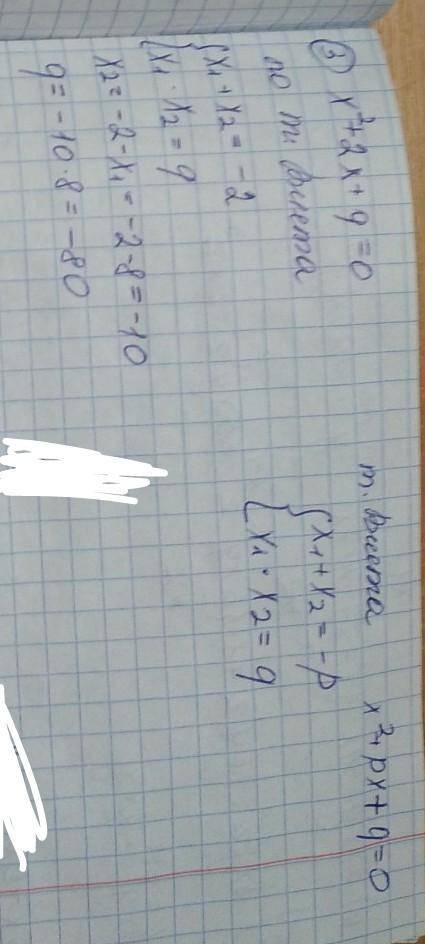 ③ x²+2x+q=0
по т. Виета
{x₁+x₂=-2
{x₁·x₂=q
x₂=-2-x₁=-2-8=-10
q=-10·8=-80
т. Виета x²+px+q=0
{x₁+x₂=-p
{x₁·x₂=q